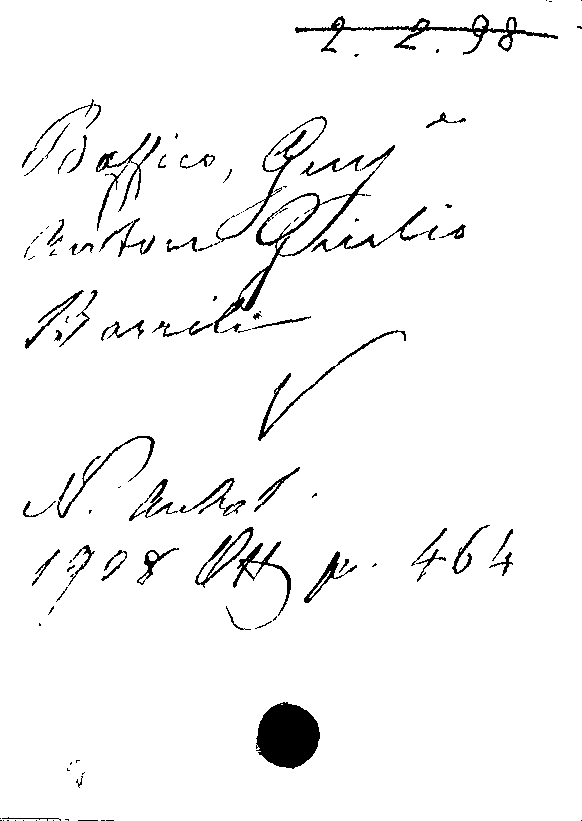 2. 2. 98
Baffico, Giuse
Anton Giulio
Barrili
N. Antol.
1908 Ott p. 464